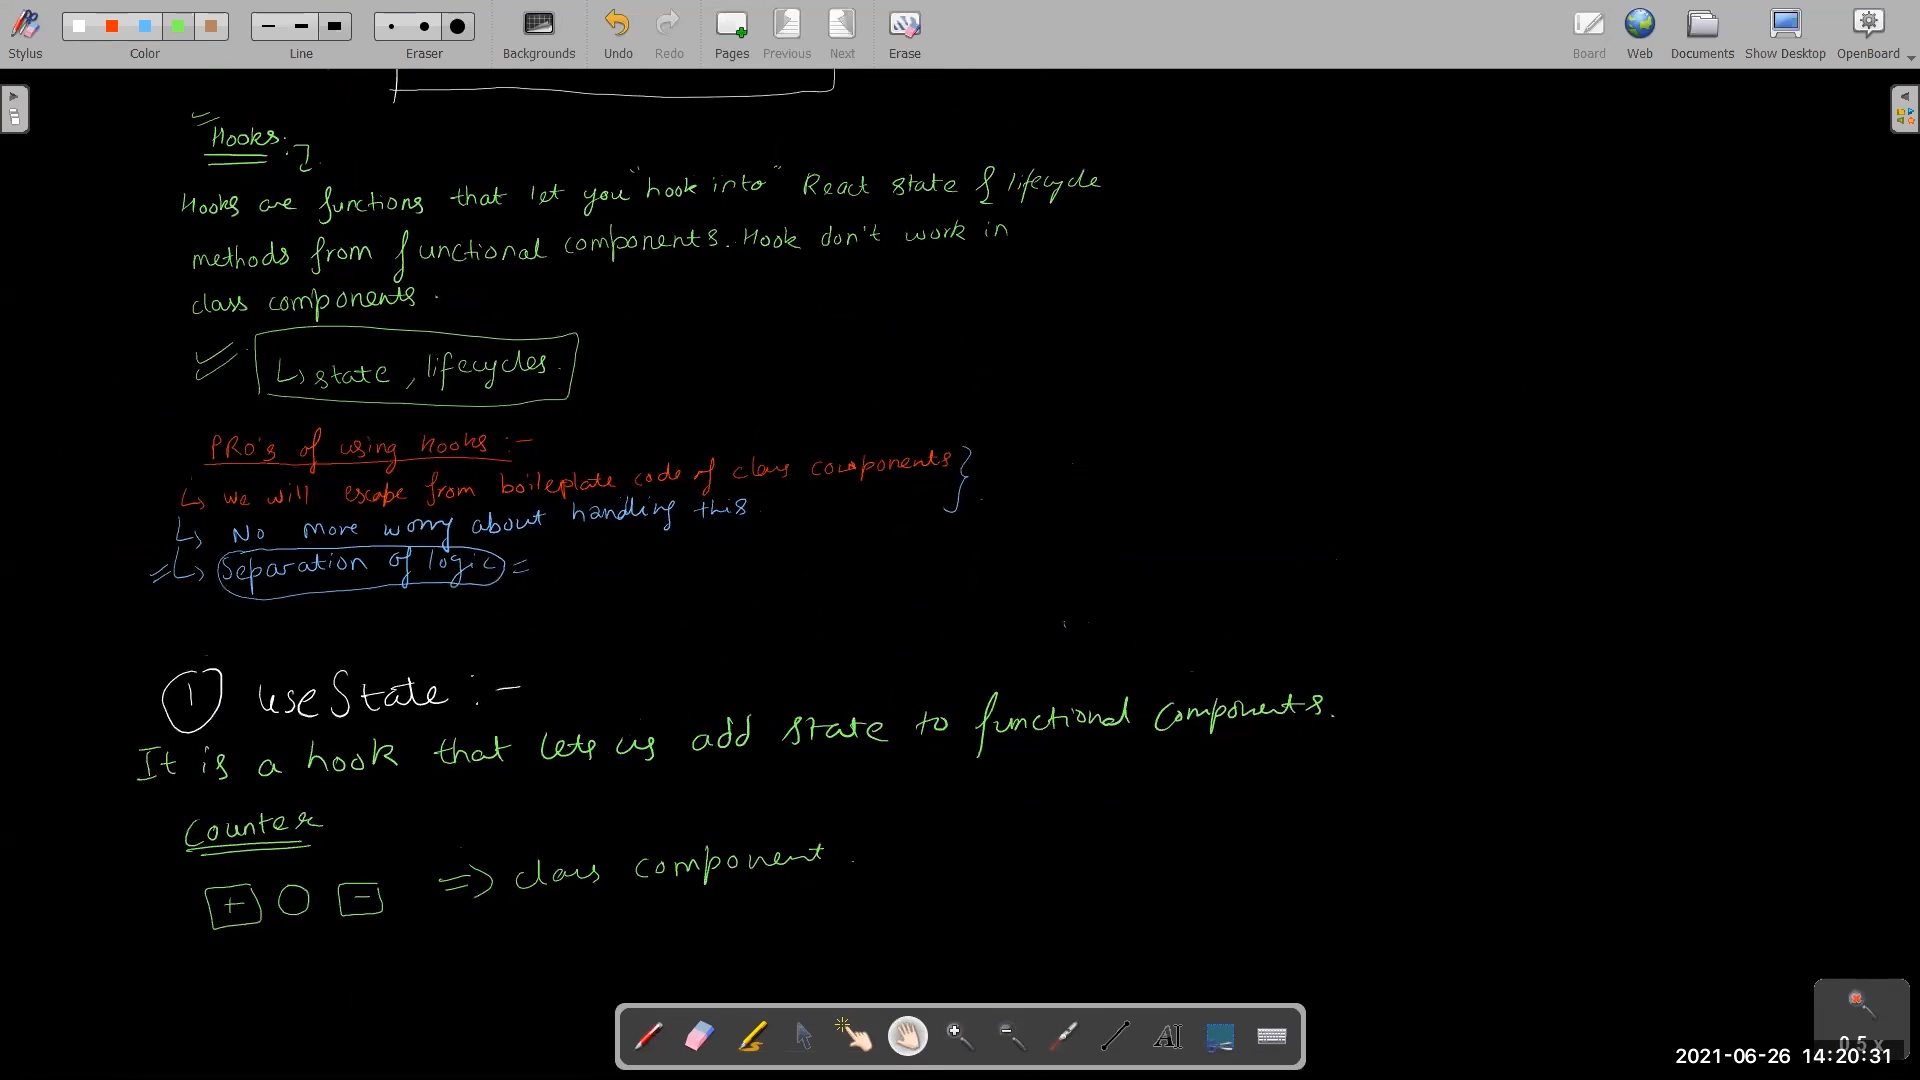 Stylus Color Line Eraser Backgrounds Undo Redo Pages Previous Next Erase Board Web Documents Show Desktop OpenBoard
Hooks
Hooks are functions that let you "hook into" React state & lifecycle
methods from functional components. Hook don't work in
class components.
↳ state, lifecycles.
PRO's of using hooks :-
↳ we will escape from boileplate code of class components
↳ No more worry about handling this
↳ Separation of logic =
1 useState :-
It is a hook that lets us add state to functional components.
Counter
+ ○ - => class component.
0.5 x
2021-06-26 14:20:31